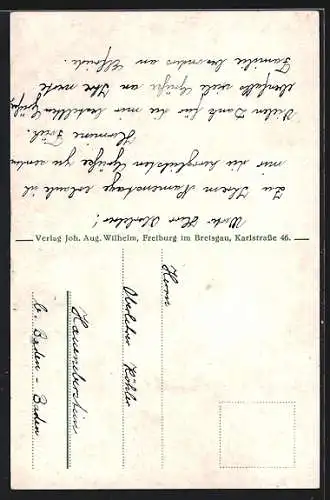 Werter Herr Oberlehrer!
Zu Ihrem Namenstage erlaube ich
mir die herzlichsten Grüße zu senden
Hermine Früh.
Vielen Dank für die mir bestellten Grüße,
ebenfalls viele Grüße an Ihre werte
Familie besonders an Elfriede.
Verlag Joh. Aug. Wilhelm, Freiburg im Breisgau, Karlstraße 46.
Herrn
Oberlehrer Köhler
Haueneberstein
b. Baden-Baden